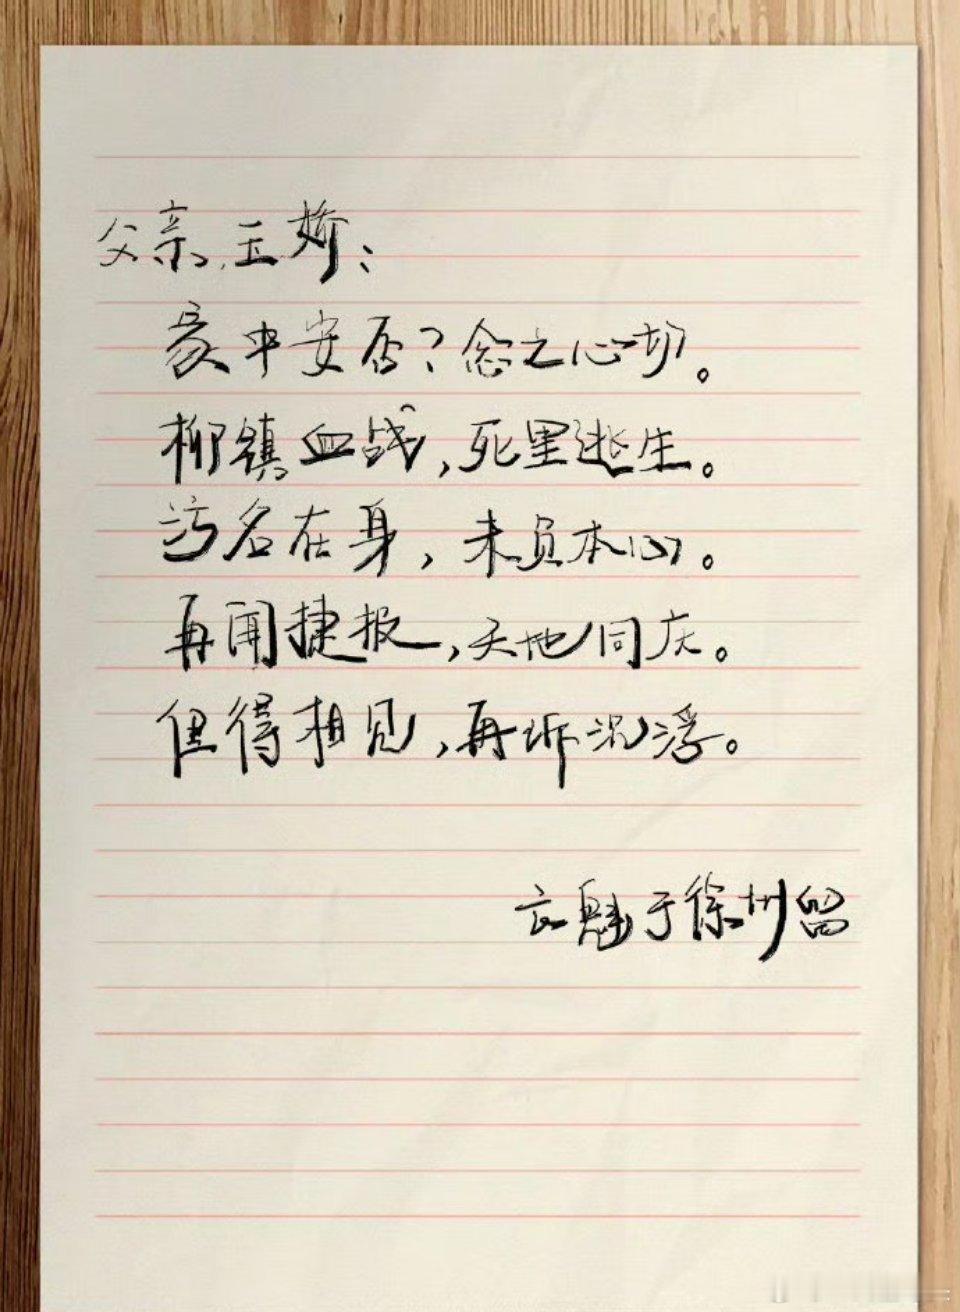 父亲、玉娇：
家中安否？念之心切。
柳镇血战，死里逃生。
污名在身，未负本心。
再闻捷报，天地同庆。
但得相见，再诉沉浮。
云魁于徐州留